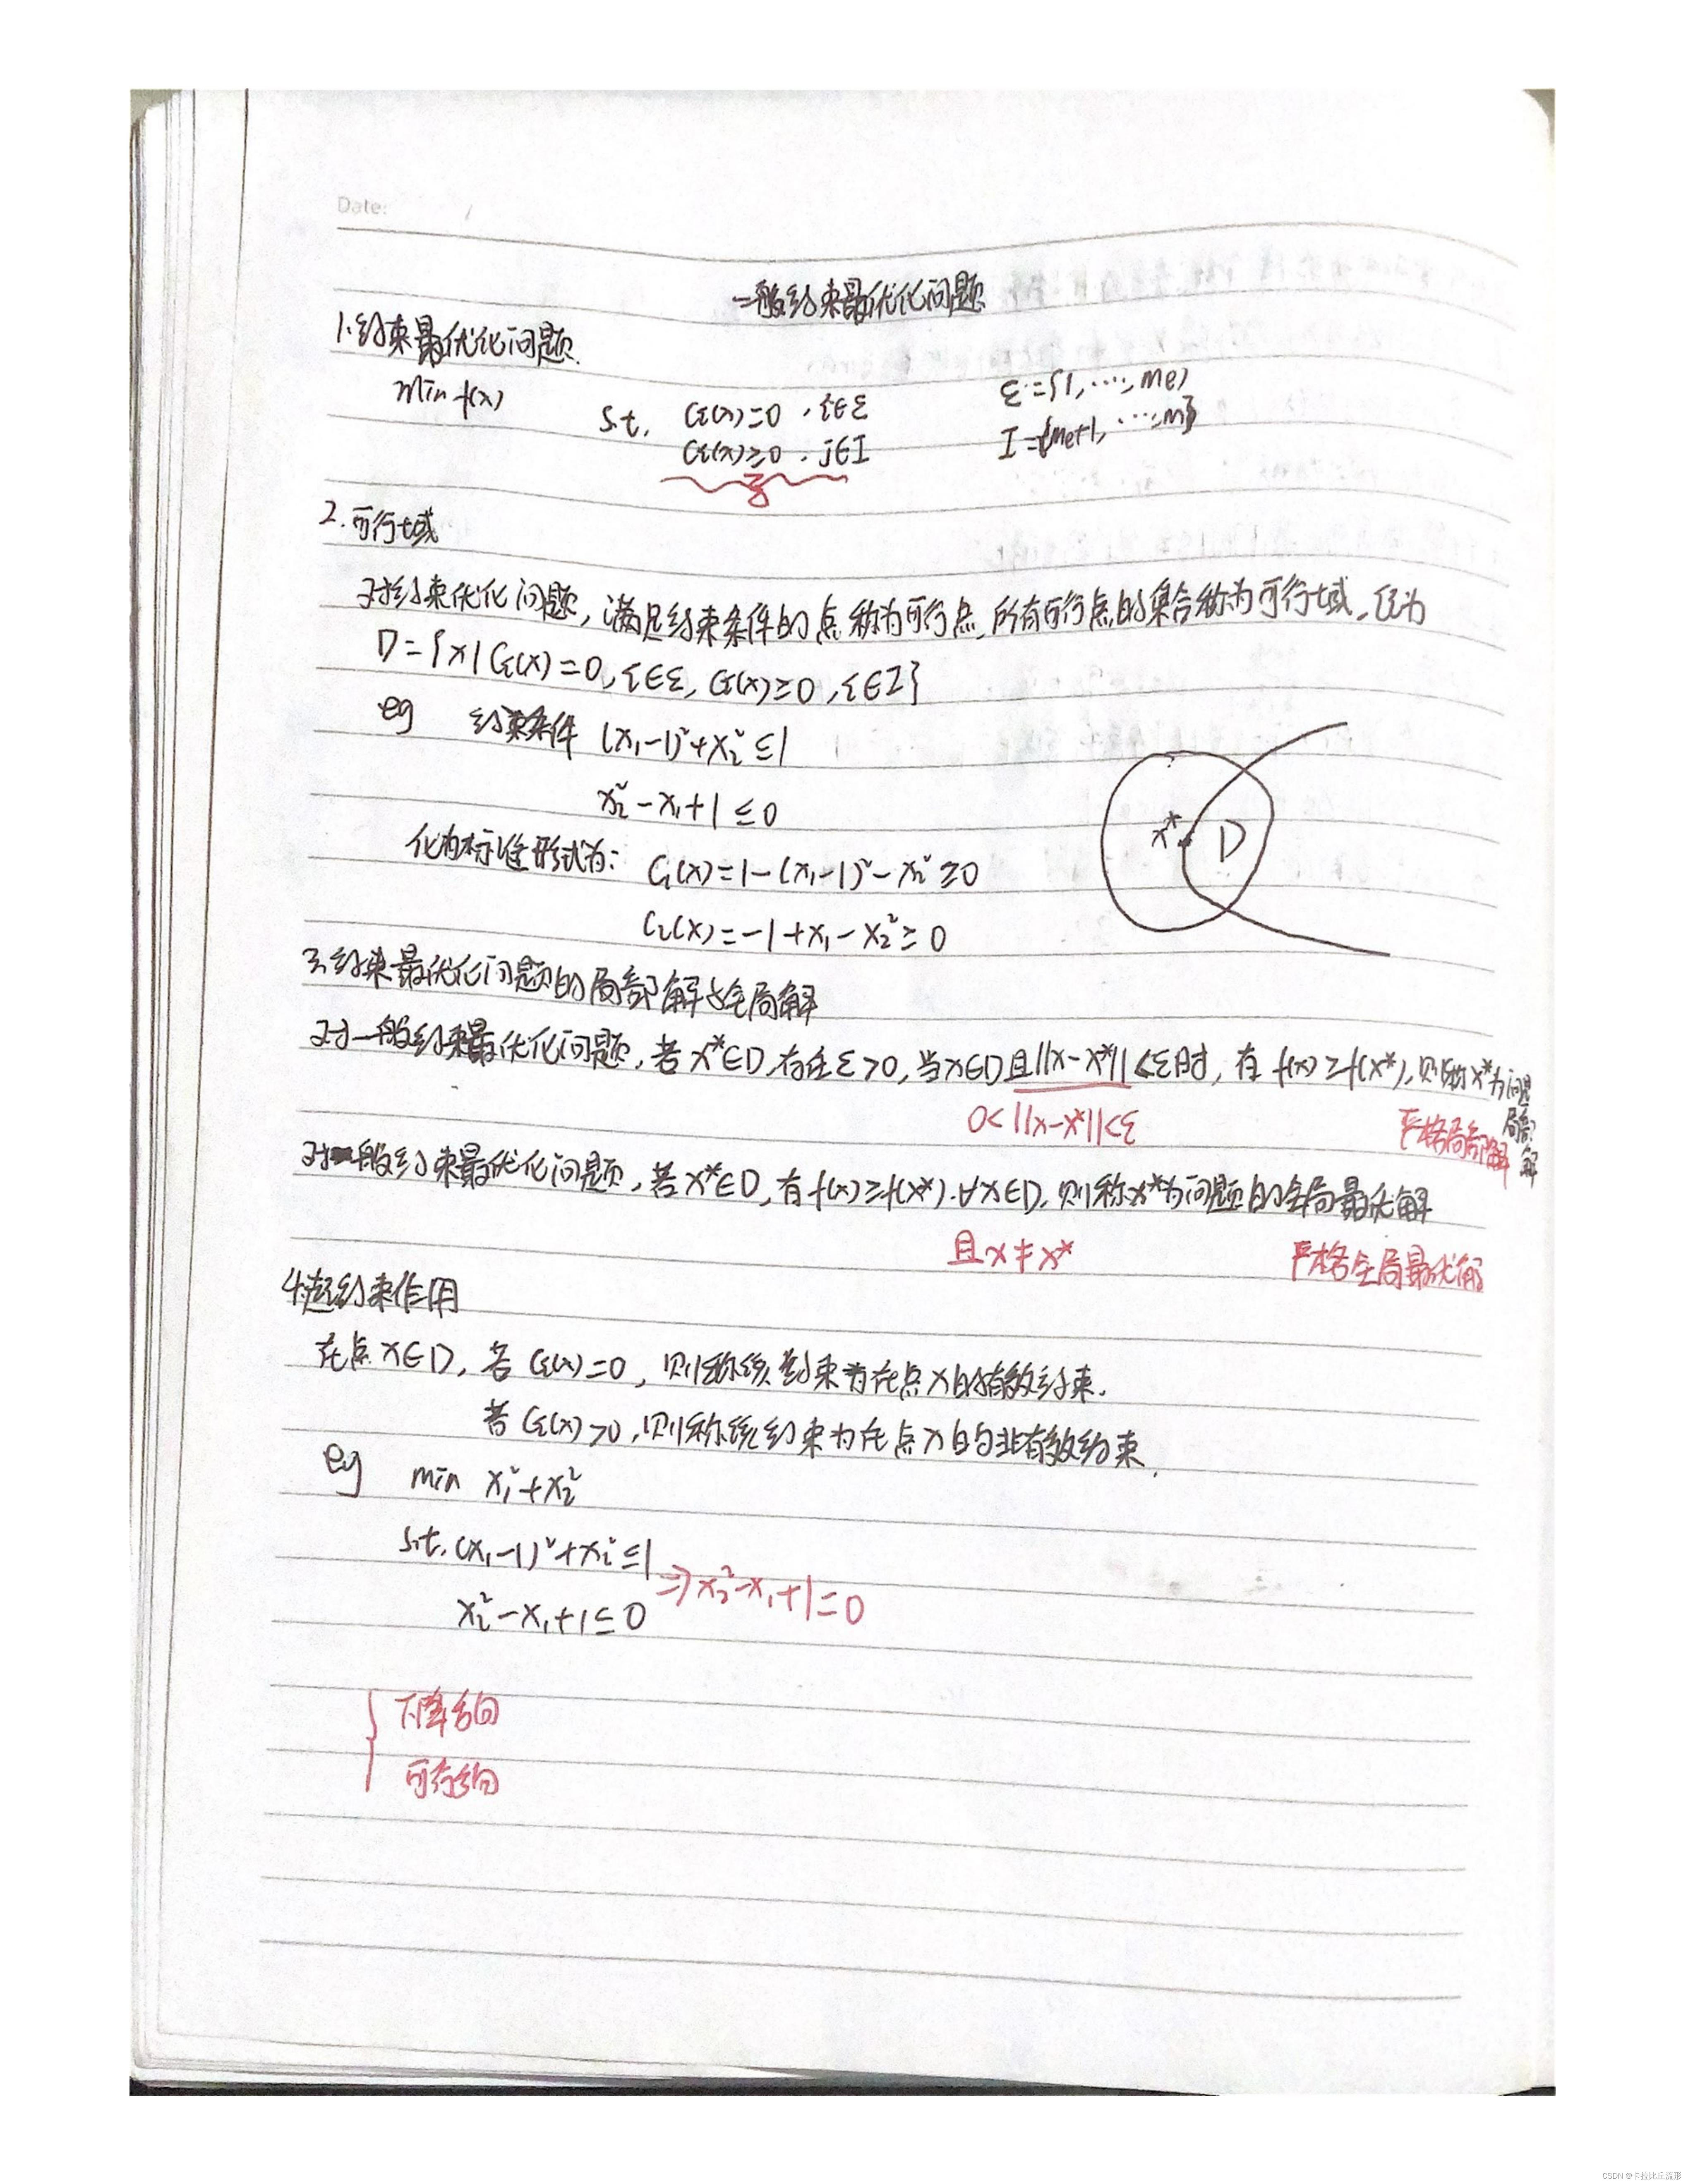 Date:
一般约束最优化问题
1.约束最优化问题.
min f(x)
s.t. Ci(x)=0 , i∈ε ε={1, ⋯, me}
Ci(x)≥0 , j∈I I={me+1, ⋯, m}
2.可行域
对约束优化问题, 满足约束条件的点称为可行点,所有可行点的集合称为可行域,记为
D={x| Ci(x)=0, i∈ε, Ci(x)≥0, i∈I}
eg 约束条件 (x₁-1)²+x₂²≤1
x₂²-x₁+1≤0
化为标准形式为: C₁(x)=1-(x₁-1)²-x₂²≥0
C₂(x)=-1+x₁-x₂²≥0
x* D
3.约束最优化问题的局部解与全局解
对一般约束最优化问题, 若x*∈D,存在ε>0, 当x∈D且||x-x*||<ε时, 有 f(x)≥f(x*), 则称x*为问题
局部解
0<||x-x*||<ε 严格局部解
对一般约束最优化问题, 若x*∈D, 有f(x)≥f(x*). ∀x∈D, 则称x*为问题的全局最优解
且x≠x* 严格全局最优解
4.起约束作用
在点x∈D, 若Ci(x)=0, 则称该约束为在点x的有效约束.
若Ci(x)>0, 则称该约束为在点x的非有效约束.
eg min x₁²+x₂²
s.t. (x₁-1)²+x₂²≤1
x₂²-x₁+1≤0 ⇒x₂²-x₁+1=0
下降方向
可行方向
CSDN @卡拉比丘流形